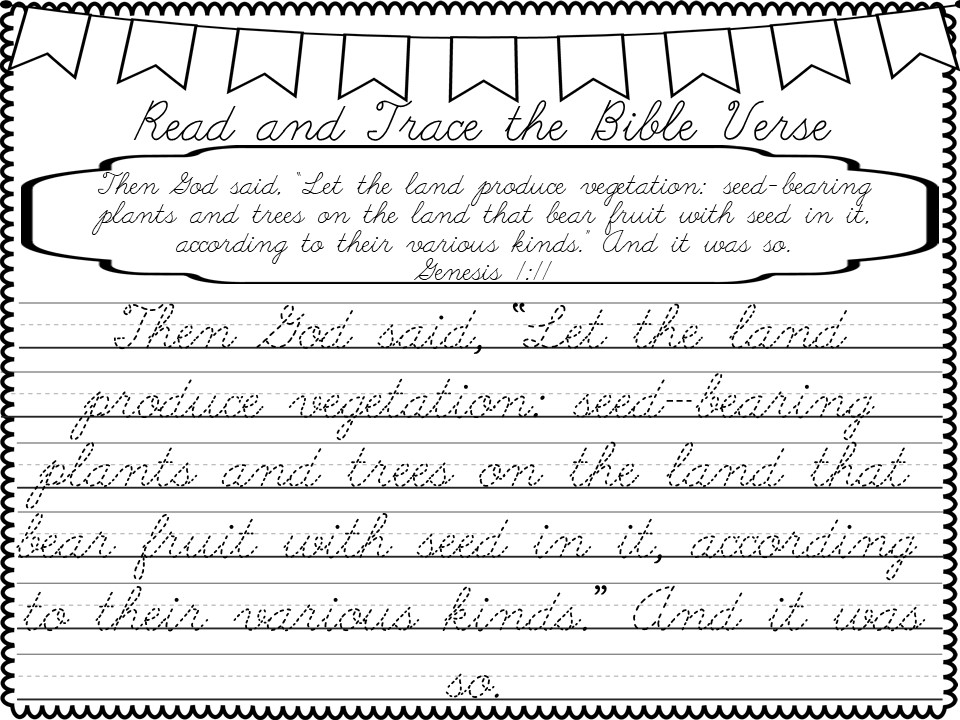 Read and Trace the Bible Verse
Then God said, “Let the land produce vegetation: seed-bearing
plants and trees on the land that bear fruit with seed in it,
according to their various kinds.” And it was so.
Genesis 1:11
Then God said, “Let the land
produce vegetation: seed-bearing
plants and trees on the land that
bear fruit with seed in it, according
to their various kinds.” And it was
so.